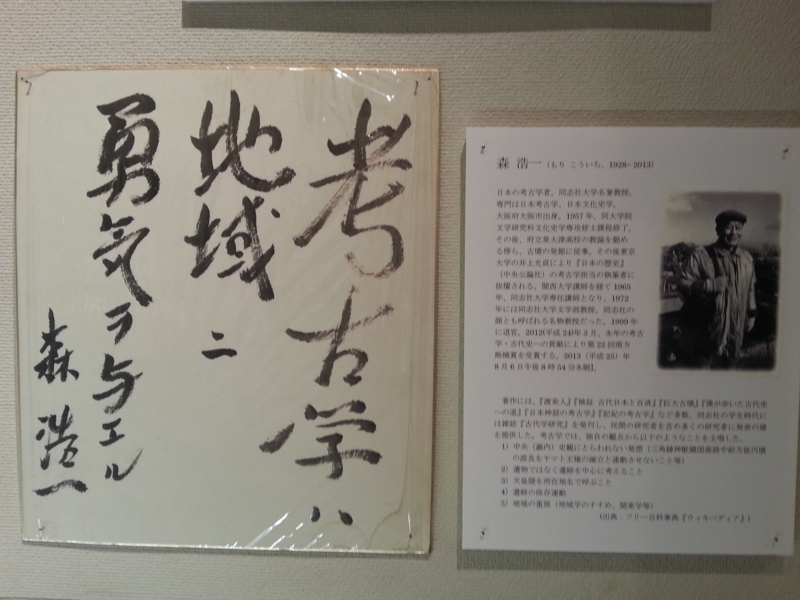 考古学ハ
地域ニ
勇気ヲ与エル
森浩一
森 浩一 (もり こういち、1928- 2013)
日本の考古学者。同志社大学名誉教授。
専門は日本考古学、日本文化史学。
大阪府大阪市出身。1957年、同大学院
文学研究科文化史学専攻修士課程修了。
その後、府立泉大津高校の教諭を勤め
る傍ら、古墳の発掘に従事。その後東京
大学の井上光貞により『日本の歴史』
(中央公論社)の考古学担当の執筆者に
抜擢される。関西大学講師を経て1965
年、同志社大学専任講師となり、1972
年には同志社大学文学部教授。同志社の
顔とも呼ばれる名物教授だった。1999年
に退官。2012(平成24)年3月、永年の考古
学・古代史への貢献により第22回南方
熊楠賞を受賞する。2013(平成25)年
8月6日午後8時54分永眠]。
著作には、『渡来人』『検証 古代日本と百済』『巨大古墳』『僕が歩いた古代史
への道』『日本神話の考古学』『記紀の考古学』など多数。同志社の学生時代に
は雑誌『古代学研究』を発刊し、民間の研究者を含め多くの研究者に発表の場
を提供した。考古学では、独自の観点から以下のようなことを主唱した。
1) 中央(畿内)史観にとらわれない発想(三角縁神獣鏡国産説や前方後円墳
の普及をヤマト王権の確立と連動させないこと等)
2) 遺物ではなく遺跡を中心に考えること
3) 天皇陵を所在地名で呼ぶこと
4) 遺跡の保存運動
5) 地域の重視(地域学のすすめ、関東学等)
(出典:フリー百科事典『ウィキペディア』)